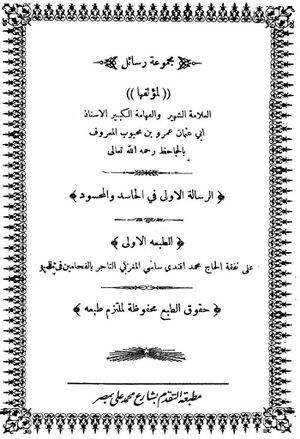 مجموعة رسائل
((لمؤلفها))
العلامة الشهير والفهامة الكبير الاستاذ
ابي عثمان عمرو بن محبوب المعروف
بالجاحظ رحمه الله تعالى
﴿ الرسالة الاولى في الحاسد والمحسود ﴾
﴿ الطبعه الاولى ﴾
على نفقة الحاج محمد افندى ساسي المغربي التاجر بالفحامين
﴿ حقوق الطبع محفوظة لملتزم طبعه ﴾
مطبعة التقدم بشارع محمد على بمصر